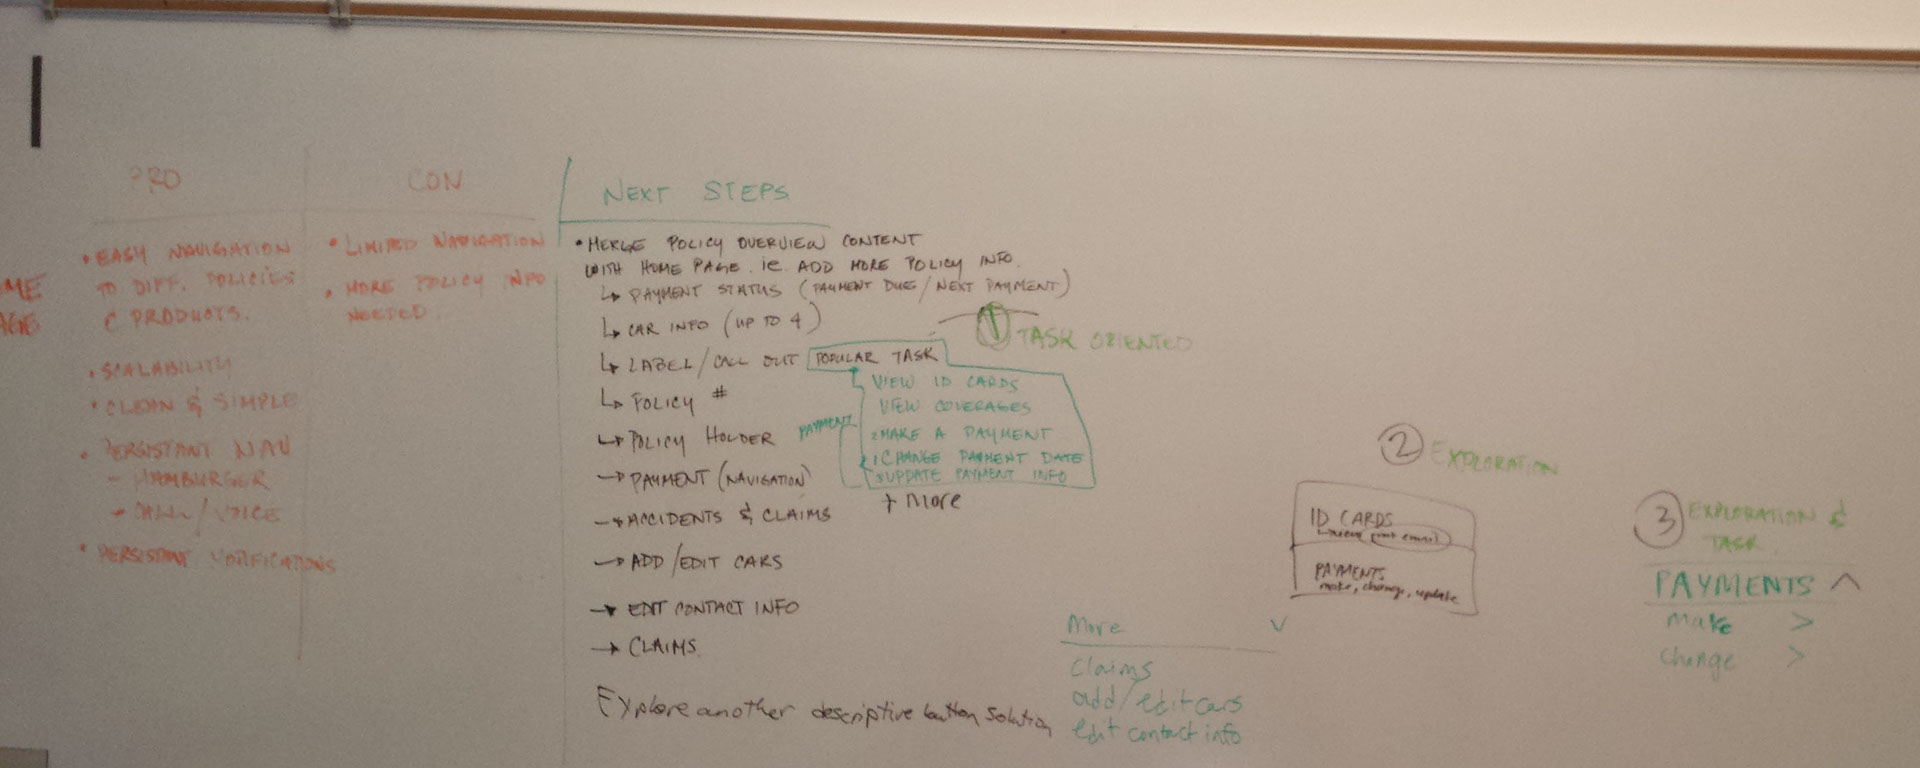 PRO
CON
NEXT STEPS
ME
• EASY NAVIGATION
TO DIFF. POLICIES
& PRODUCTS.
• SCALABILITY
• CLEAN & SIMPLE
• PERSISTANT NAV
- HAMBURGER
- CALL / VOICE
• PERSISTANT NOTIFICATIONS
• LIMITED NAVIGATION
• MORE POLICY INFO
NEEDED.
• MERGE POLICY OVERVIEW CONTENT
WITH HOME PAGE. ie. ADD MORE POLICY INFO.
↳ PAYMENT STATUS (PAYMENT DUE / NEXT PAYMENT)
↳ CAR INFO (UP TO 4)
↳ LABEL / CALL OUT POPULAR TASK
↳ POLICY #
↳ POLICY HOLDER
→ PAYMENT (NAVIGATION)
→ ACCIDENTS & CLAIMS
→ ADD / EDIT CARS
→ EDIT CONTACT INFO
→ CLAIMS.
Explore another descriptive button solution
1 TASK ORIENTED
VIEW ID CARDS
VIEW COVERAGES
PAYMENT
2 MAKE A PAYMENT
1 CHANGE PAYMENT DATE
3 UPDATE PAYMENT INFO
+ More
More ∨
Claims
add/edit cars
edit contact info
2 EXPLORATION
ID CARDS
PAYMENTS
make, change, update
3 EXPLORATION &
TASK
PAYMENTS ^
make >
change >